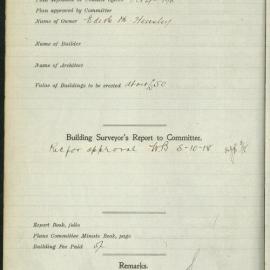 Plan approved by Committee
Name of Owner
Name of Builder
Name of Architect
Value of Buildings to be erected about £50
Building Surveyor's Report to Committee.
Rec for approval WB 5-10-18
Report Book, folio
Plans Committee Minute Book, page
Building Fee Paid
Remarks.